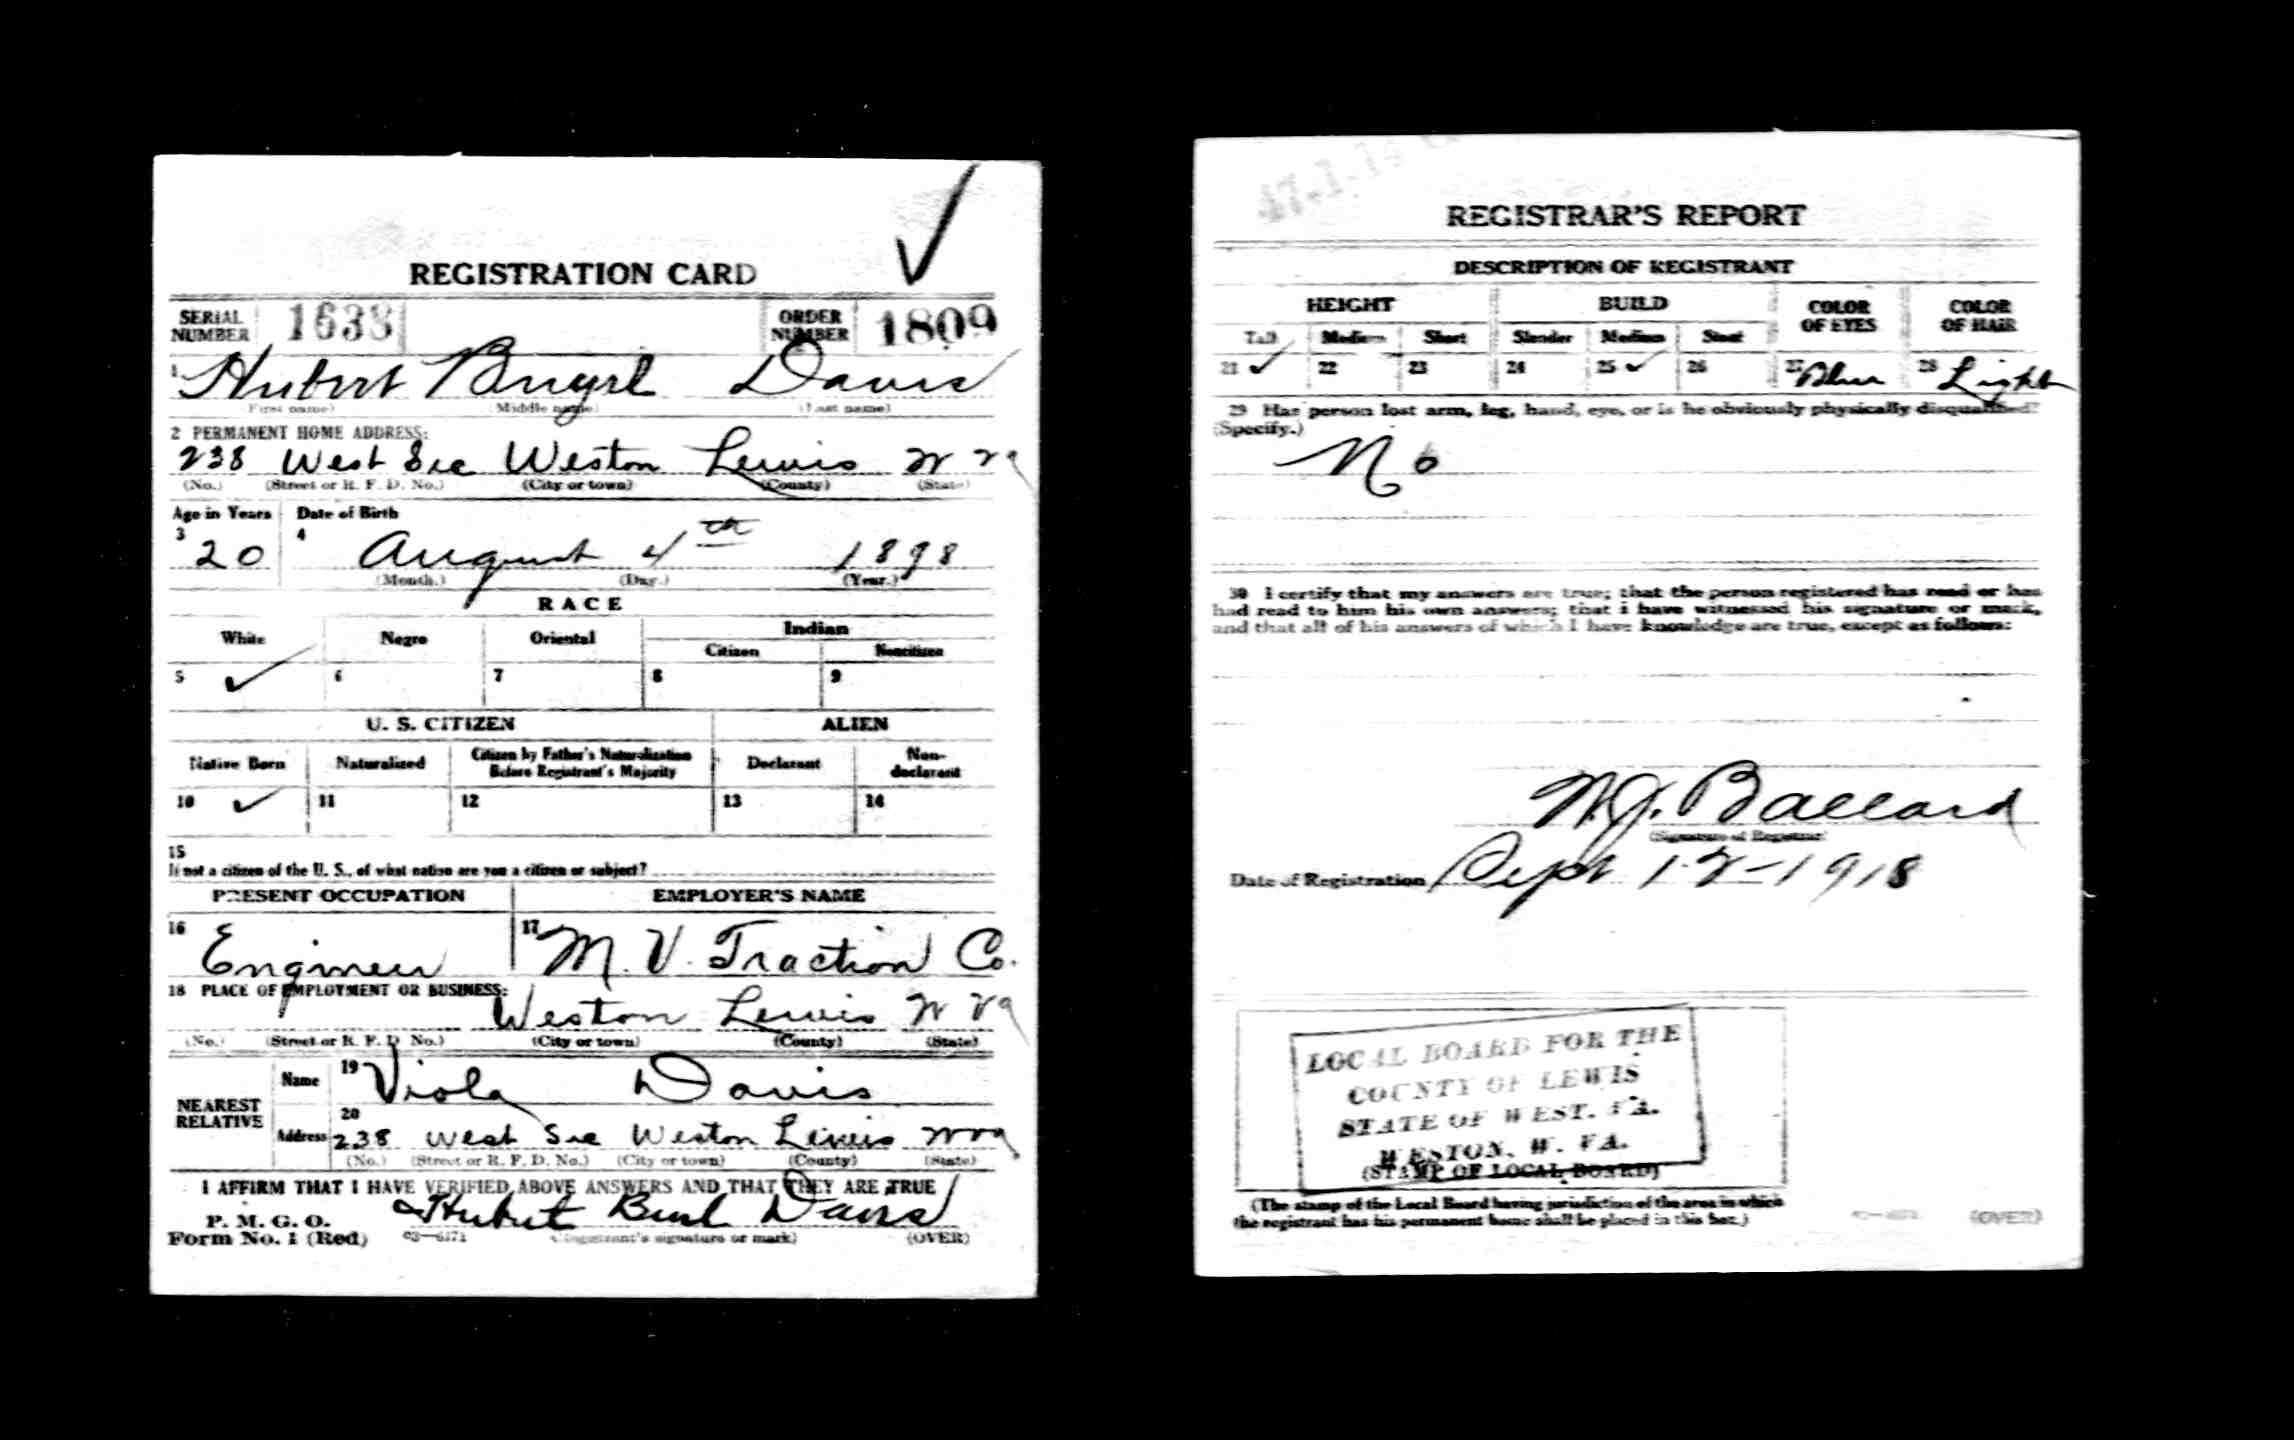 REGISTRATION CARD
SERIAL NUMBER 1638 ORDER NUMBER 1809
1 Hubert Davis
(First name) (Middle name) (Last name)
2 PERMANENT HOME ADDRESS:
238 West Sec Weston Lewis W Va
(No.) (Street or R. F. D. No.) (City or town) (County) (State)
Age in Years Date of Birth
3 20 4 August 4th 1898
(Month.) (Day.) (Year.)
RACE
White Negro Oriental Indian
Citizen Noncitizen
5 ✓ 6 7 8 9
U. S. CITIZEN ALIEN
Native Born Naturalized Citizen by Father's Naturalization Before Registrant's Majority Declarant Non-declarant
10 ✓ 11 12 13 14
15
If not a citizen of the U. S., of what nation are you a citizen or subject?
PRESENT OCCUPATION EMPLOYER'S NAME
16 Engineer 17 M. V. Traction Co.
18 PLACE OF EMPLOYMENT OR BUSINESS:
Weston Lewis W Va
(No.) (Street or R. F. D. No.) (City or town) (County) (State)
NEAREST RELATIVE
Name 19 Viola Davis
Address 20 238 West Sec Weston Lewis W Va
(No.) (Street or R. F. D. No.) (City or town) (County) (State)
I AFFIRM THAT I HAVE VERIFIED ABOVE ANSWERS AND THAT THEY ARE TRUE
P. M. G. O.
Form No. 1 (Red) 03—6171 Hubert Burl Davis
(Registrant's signature or mark) (OVER)
REGISTRAR'S REPORT
DESCRIPTION OF REGISTRANT
HEIGHT BUILD COLOR OF EYES COLOR OF HAIR
Tall Medium Short Slender Medium Stout
21 ✓ 22 23 24 25 ✓ 26 27 Blue 28 Light
29 Has person lost arm, leg, hand, eye, or is he obviously physically disqualified?
(Specify.)
No
30 I certify that my answers are true; that the person registered has read or has
had read to him his own answers; that I have witnessed his signature or mark,
and that all of his answers of which I have knowledge are true, except as follows:
W. J. Ballard
(Signature of Registrar)
Date of Registration Sept 12-1918
LOCAL BOARD FOR THE
COUNTY OF LEWIS
STATE OF WEST. VA.
WESTON, W. VA.
(STAMP OF LOCAL BOARD)
(The stamp of the Local Board having jurisdiction of the area in which
the registrant has his permanent home shall be placed in this box.)
(OVER)